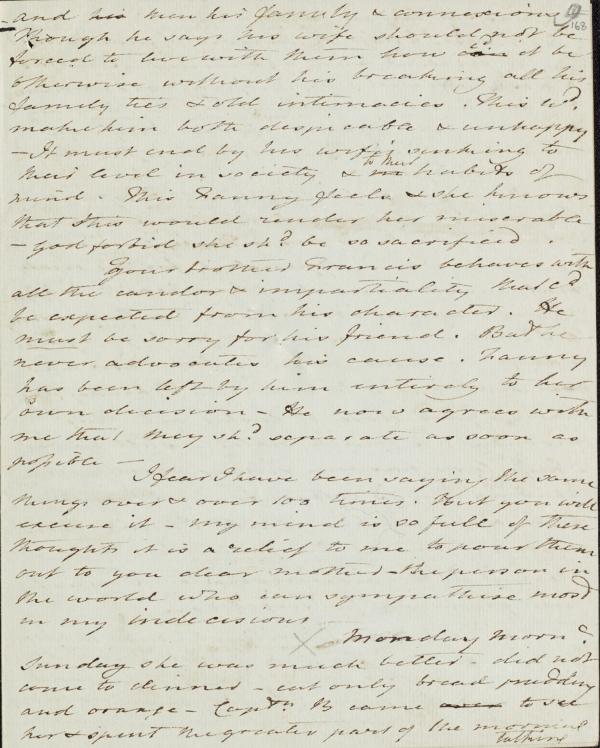 168
and his man his family & connexions
Though he says his wife should not be
forced to live with them how can it be
otherwise without his breaking all his
family ties & old intimacies. This wd.
make him both despicable & unhappy
– It must end by his wife's sinking to
their level in society & to their habits of
mind. This Fanny feels & she knows
that this would render her miserable
– God forbid she shd. be so sacrificed.
Your brother Francis behaves with
all the candor & impartiality that cd.
be expected from his character. He
must be sorry for his friend. But he
never advocates his cause. Fanny
has been left by him entirely to her
own decision – He now agrees with
me that they shd. separate as soon as
possible –
I fear I have been saying the same
things over & over 100 times. But you will
excuse it – my mind is so full of these
thoughts it is a relief to me to pour them
out to you dear mother – the person in
the world who can sympathise most
in my indecisions
X Monday Morng.
Sunday she was much better – did not
come to dinner – eat only bread pudding
and orange – Captn B came to see
her & spent the greater part of the morning
talking